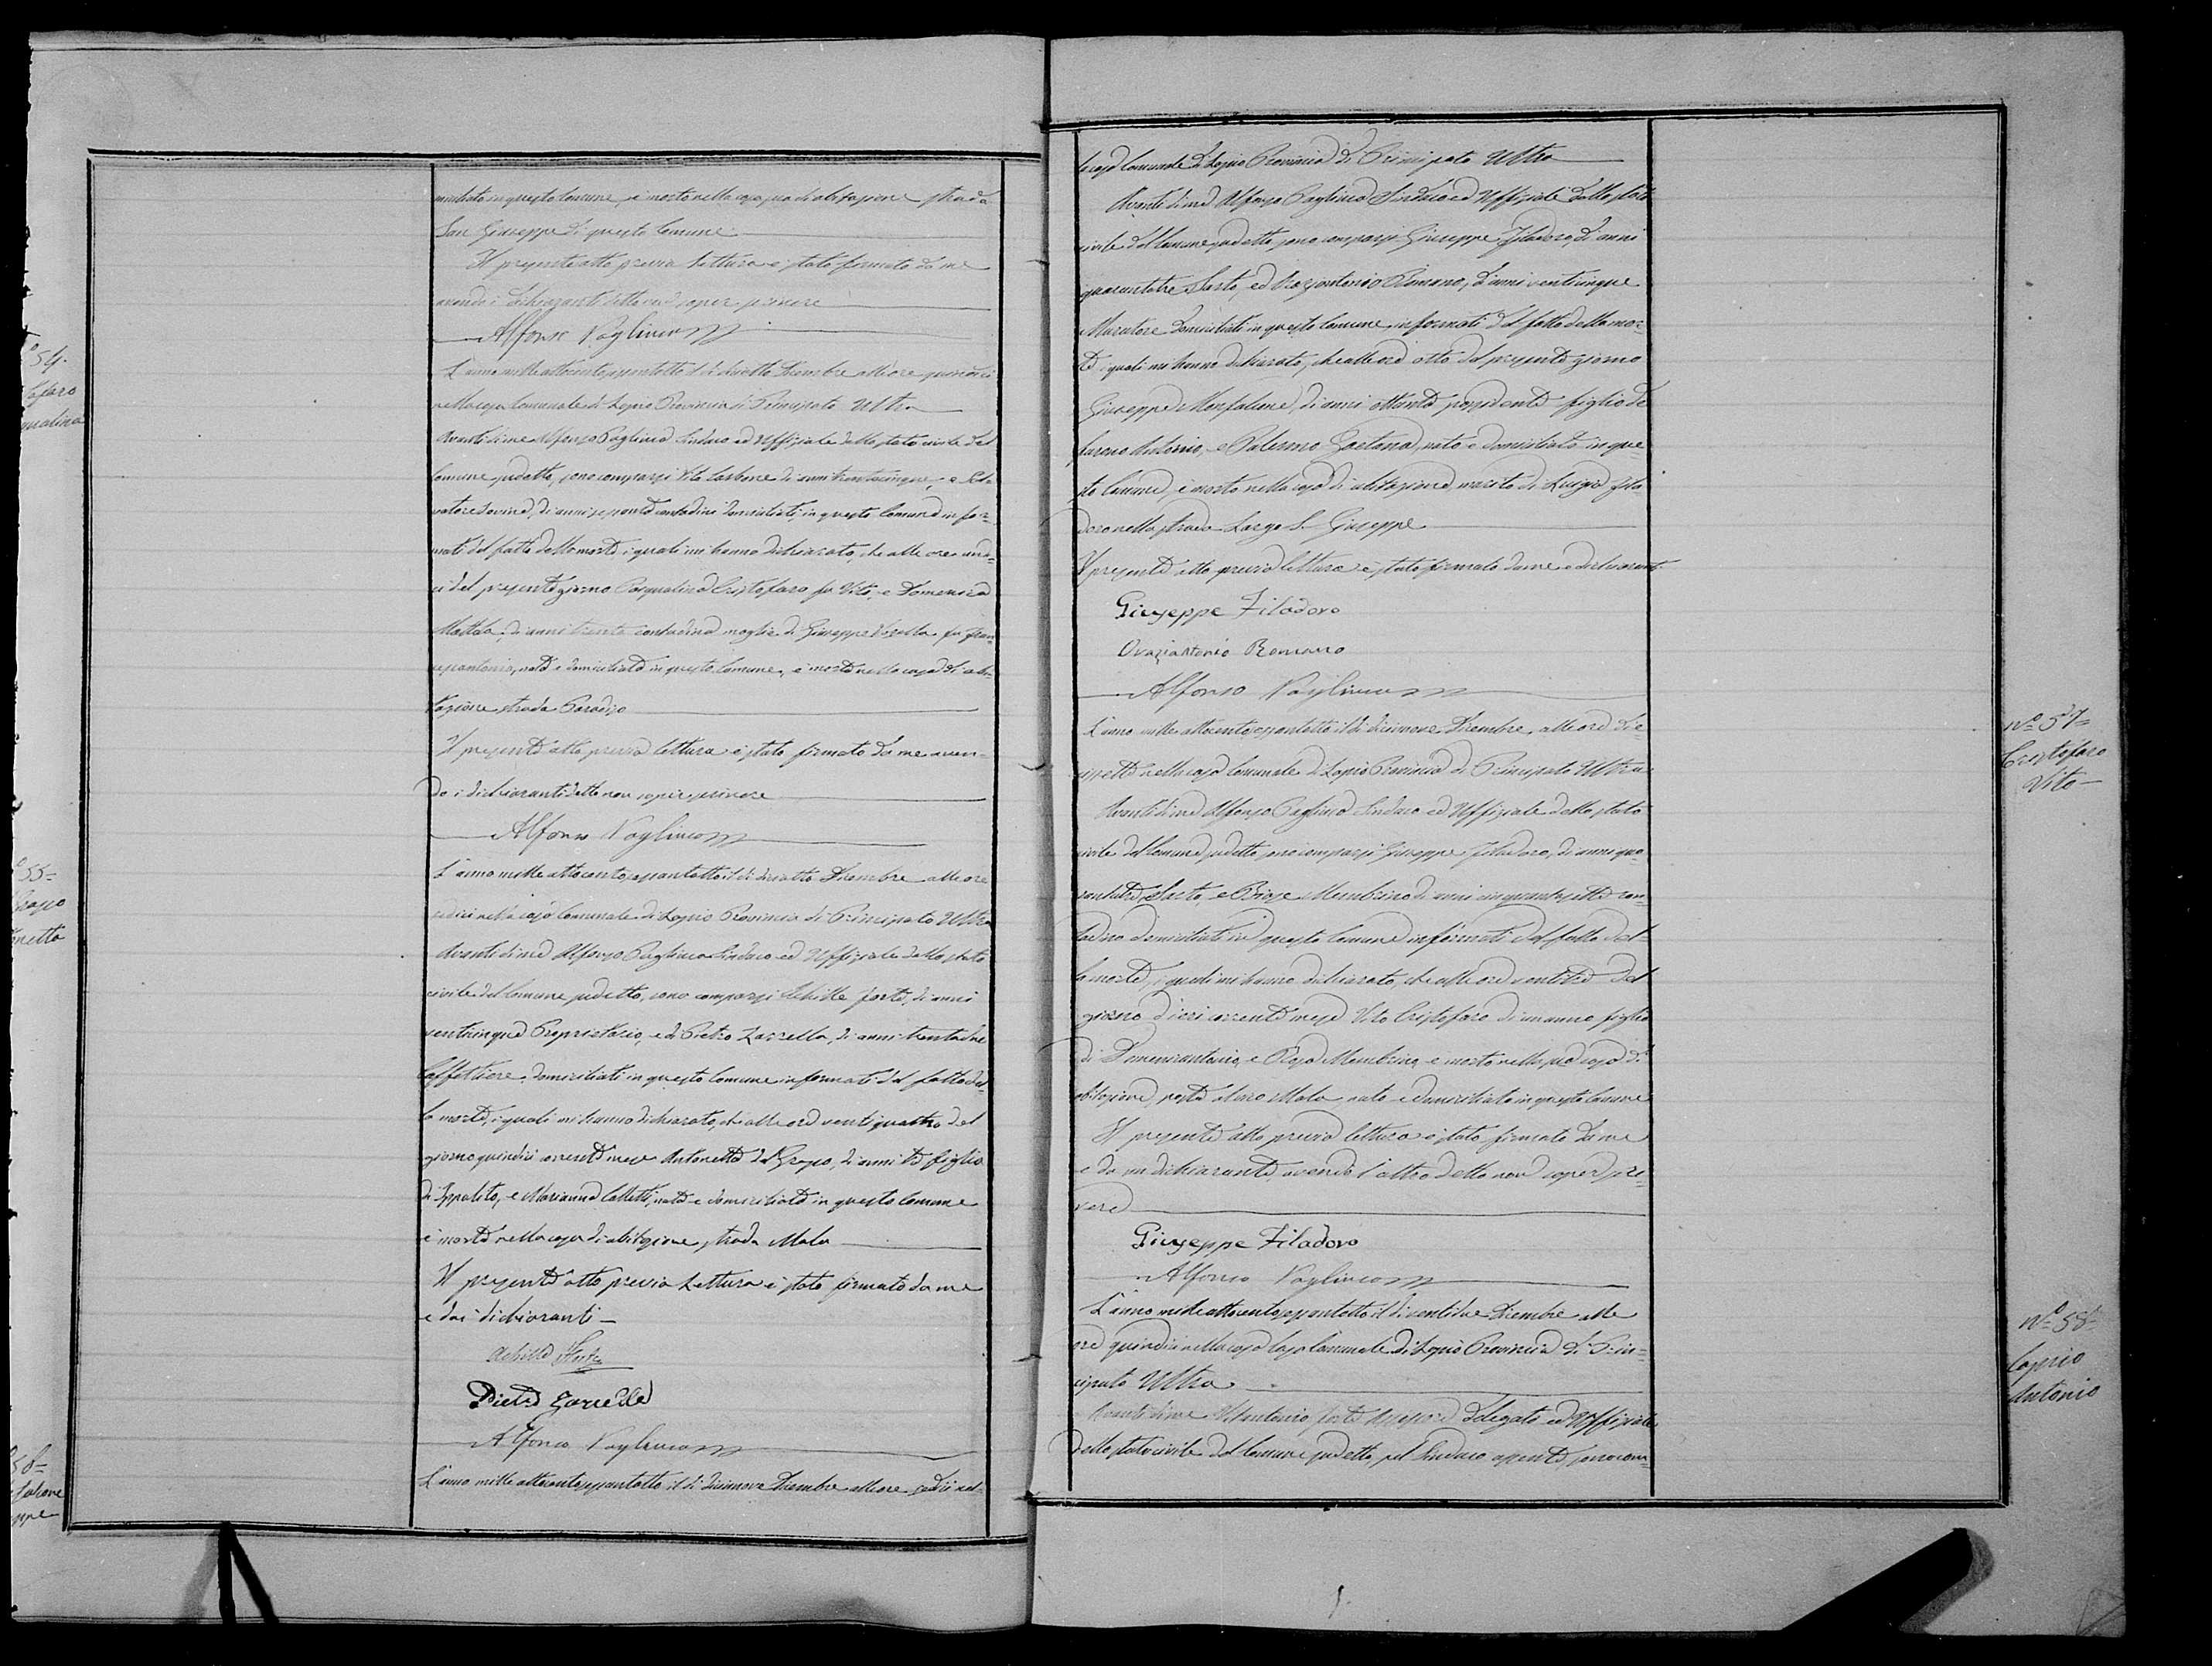 miciliato in questo Comune, è morto nella casa sua di abitazione strada
San Giuseppe di questo Comune
Il presente atto previa lettura è stato firmato da me
avendo i dichiaranti detto non saper scrivere
Alfonso Pagliuca
N.° 54.
tofaro
qualina
L'anno mille ottocentosessantotto il di diciotto Dicembre alle ore quindici
nella casa Comunale di Lapio Provincia di Principato Ultra
Avanti di me Alfonso Pagliuca Sindaco ed Uffiziale dello stato civile del
Comune sudetto, sono comparsi Vito Carbone di anni trentacinque, e Sal
vatore di anni sessanta contadini domiciliati in questo Comune infor=
mati del fatto della morte, i quali mi hanno dichiarato, che alle ore undi=
ci del presente giorno Pasqualina Cristofaro fu Vito, e Domenica
Mottola, di anni trenta contadina moglie di Giuseppe fu Fran=
cescantonio, nata e domiciliata in questo Comune, è morta nella casa di abi=
tazione strada Paradiso
Il presente atto previa lettura è stato firmato da me aven=
do i dichiaranti detto non saper scrivere
Alfonso Pagliuca
° 55=
Grapo
onetta
L'anno mille ottocentosessantotto il di diciotto Dicembre alle ore
sedici nella casa Comunale di Lapio Provincia di Principato Ultra
Avanti di me Alfonso Pagliuca Sindaco ed Uffiziale dello stato
civile del Comune sudetto, sono comparsi Achille Forte, di anni
venticinque Proprietario, e di Pietro Zarrella, di anni trentadue
Caffettiere, domiciliati in questo Comune informati del fatto del=
la morte, i quali mi hanno dichiarato, che alle ore ventiquattro del
giorno quindici corrente mese Antonetta del Grapo, di anni tre figlia
di Ippolito, e Marianna Colletti, nata e domiciliata in questo Comune
è morta nella casa di abitazione strada Mola
Il presente atto previa Lettura è stato firmato da me
e dai dichiaranti
Achille Forte
Pietro Zarrella
Alfonso Pagliuca
56=
falcone
ppe
L'anno mille ottocentosessantotto il di diciannove Dicembre alle ore sedici nel=
la casa Comunale di Lapio Provincia di Principato Ultra
Avanti di me Alfonso Pagliuca Sindaco ed Uffiziale dello stato
civile del Comune sudetto sono comparsi Giuseppe Filadoro, di anni
quarantatre Sarto, ed Oraziantonio Romano, di anni venticinque
Muratore domiciliati in questo Comune informati del fatto della mor=
te i quali mi hanno dichiarato, che alle ore otto del presente giorno
Giuseppe Monfalcone, di anni ottanta possidente figlio de
furono Antonio, e Palermo Gaetana, nato e domiciliato in que
sto Comune, è morto nella casa di abitazione, marito di Luigia Fila
doro nella strada Largo S. Giuseppe
Il presente atto previa lettura è stato firmato da me e dichiaranti
Giuseppe Filadoro
Oraziantonio Romano
Alfonso Pagliuca
N.° 57=
Cristofaro
Vito
L'anno mille ottocentosessantotto il di diciannove Dicembre, alle ore dic
iassette nella casa Comunale di Lapio Provincia di Principato Ultra
Avanti di me Alfonso Pagliuca Sindaco ed Uffiziale dello stato
civile del Comune sudetto sono comparsi Giuseppe Filadoro, di anni qua
rantatre Sarto, e Biase Membrino di anni cinquantasette con
tadino domiciliati in questo Comune informati del fatto del=
la morte, i quali mi hanno dichiarato, che alle ore ventitre del
giorno di ieri corrente mese Vito Cristofaro di un anno figlio
di Domenicantonio, e Rosa Membrino, è morto nella sua casa di
abitazione, Mola nato e domiciliato in questo Comune
Il presente atto previa lettura è stato firmato da me
e da un dichiarante, avendo l'altro detto non saper scri=
vere
Giuseppe Filadoro
Alfonso Pagliuca
N.° 58=
Caprio
Antonio
L'anno mille ottocentosessantotto il di ventidue Dicembre alle
ore quindici nella casa Comunale di Lapio Provincia di Prin=
cipato Ultra
Avanti di me Vitantonio Forte Assessore Delegato ed Uffiziale
dello stato civile del Comune sudetto, pel Sindaco assente, sono com=